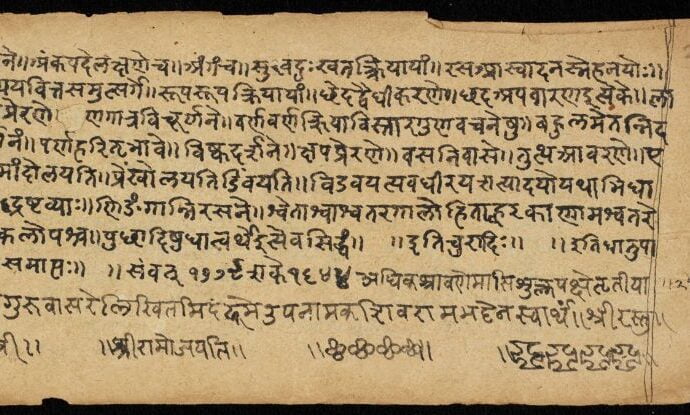 नै॥अंकपदेलक्षणेच॥अंगंच॥सुखदुःखतत्क्रियायां॥रसआस्वादनस्नेहनयोः॥
ययवित्तसमुत्सर्गे॥रूपरूपक्रियायां॥छेदद्वैधीकरणे॥छदअपवारणइत्येके॥ला
प्रेरणे णगात्रविचूर्णने॥वर्णवर्णक्रियाविस्तारगुणवचनेषु॥बहुलमेतन्निद
र्नं॥पर्णहरितभावे॥विष्कदर्शने॥क्षपप्रेरणे॥वसनिवासे॥तुत्थआवरणे॥ए
मांदोलयति॥प्रेंखोलयतिडिंवयति॥विडवयत्यवधीरयत्यादयोयथाभिधा
द्रष्टव्याः॥णिङंगान्निरसने॥श्वेताश्वाश्वतरगालोडिताह्वरकाणामश्वतरे
कलोपश्च॥पुछादिषुधात्वर्थइत्येवसिद्धं॥ ॥इतिचुरादिः॥ ॥इतिधातुपा
समाप्तः॥ ॥संवत् १७७९शके१६४४ अधिकश्रावणेमासिशुक्लपक्षेतृतीया
गुरुवासरेलिखितमिदं उपनामकशिवराम स्वार्थं॥श्रीरस्तु॥
श्री॥ ॥श्रीरामोजयति॥